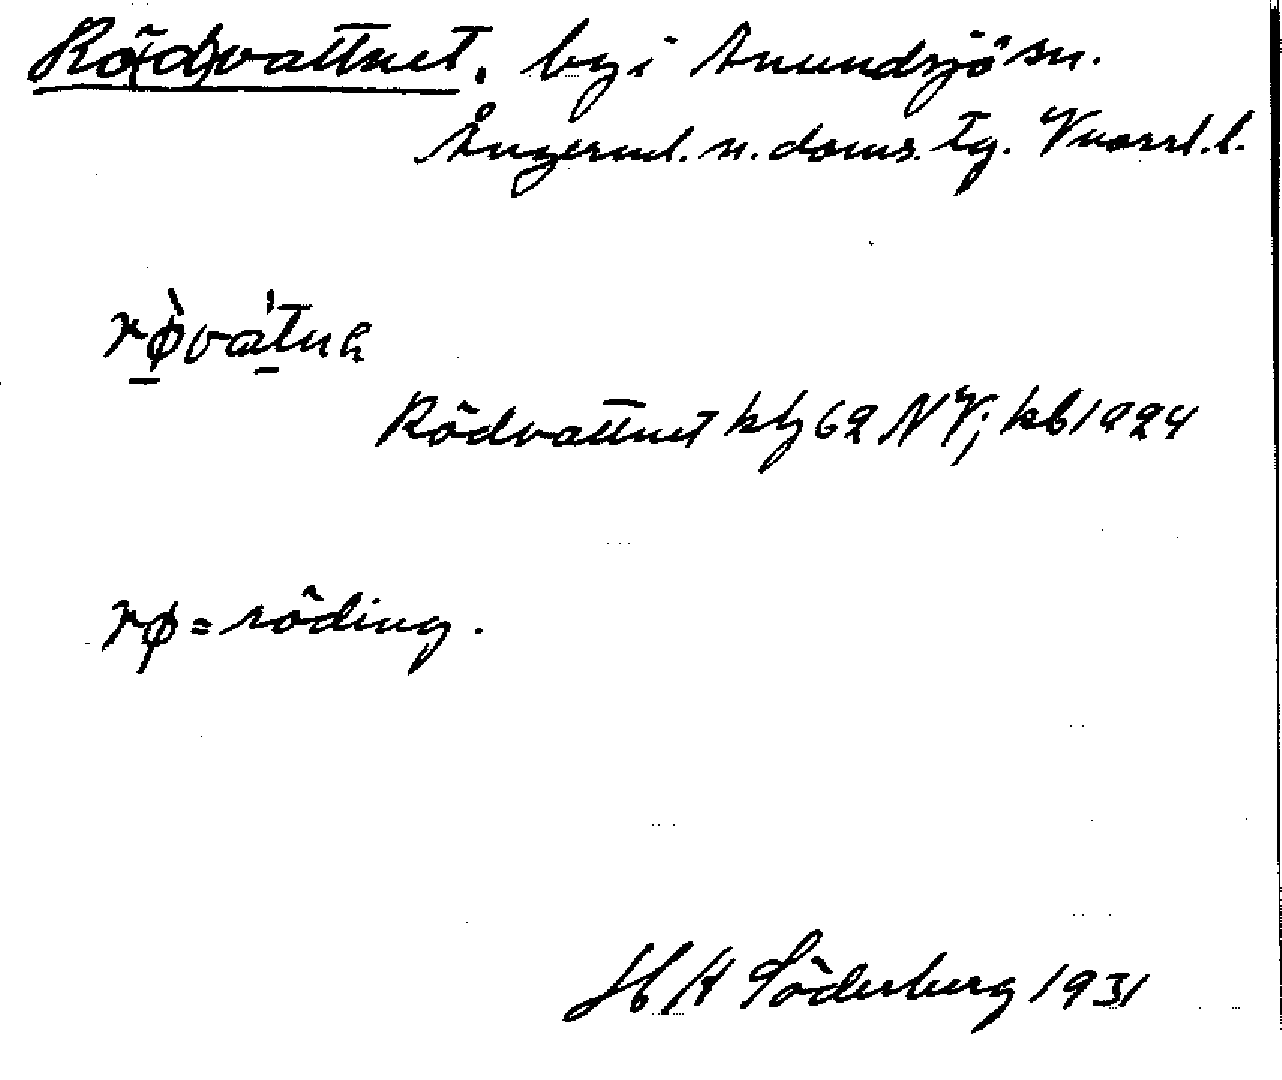 Rö(d)vattnet. by i Anundsjö sn.
Ångerml. n. doms. tg. Vnorrl. l.
rø̀vát
Rödvattnet kbl 62 NV; kb 1924
rø = röding.
H A Söderberg 1931